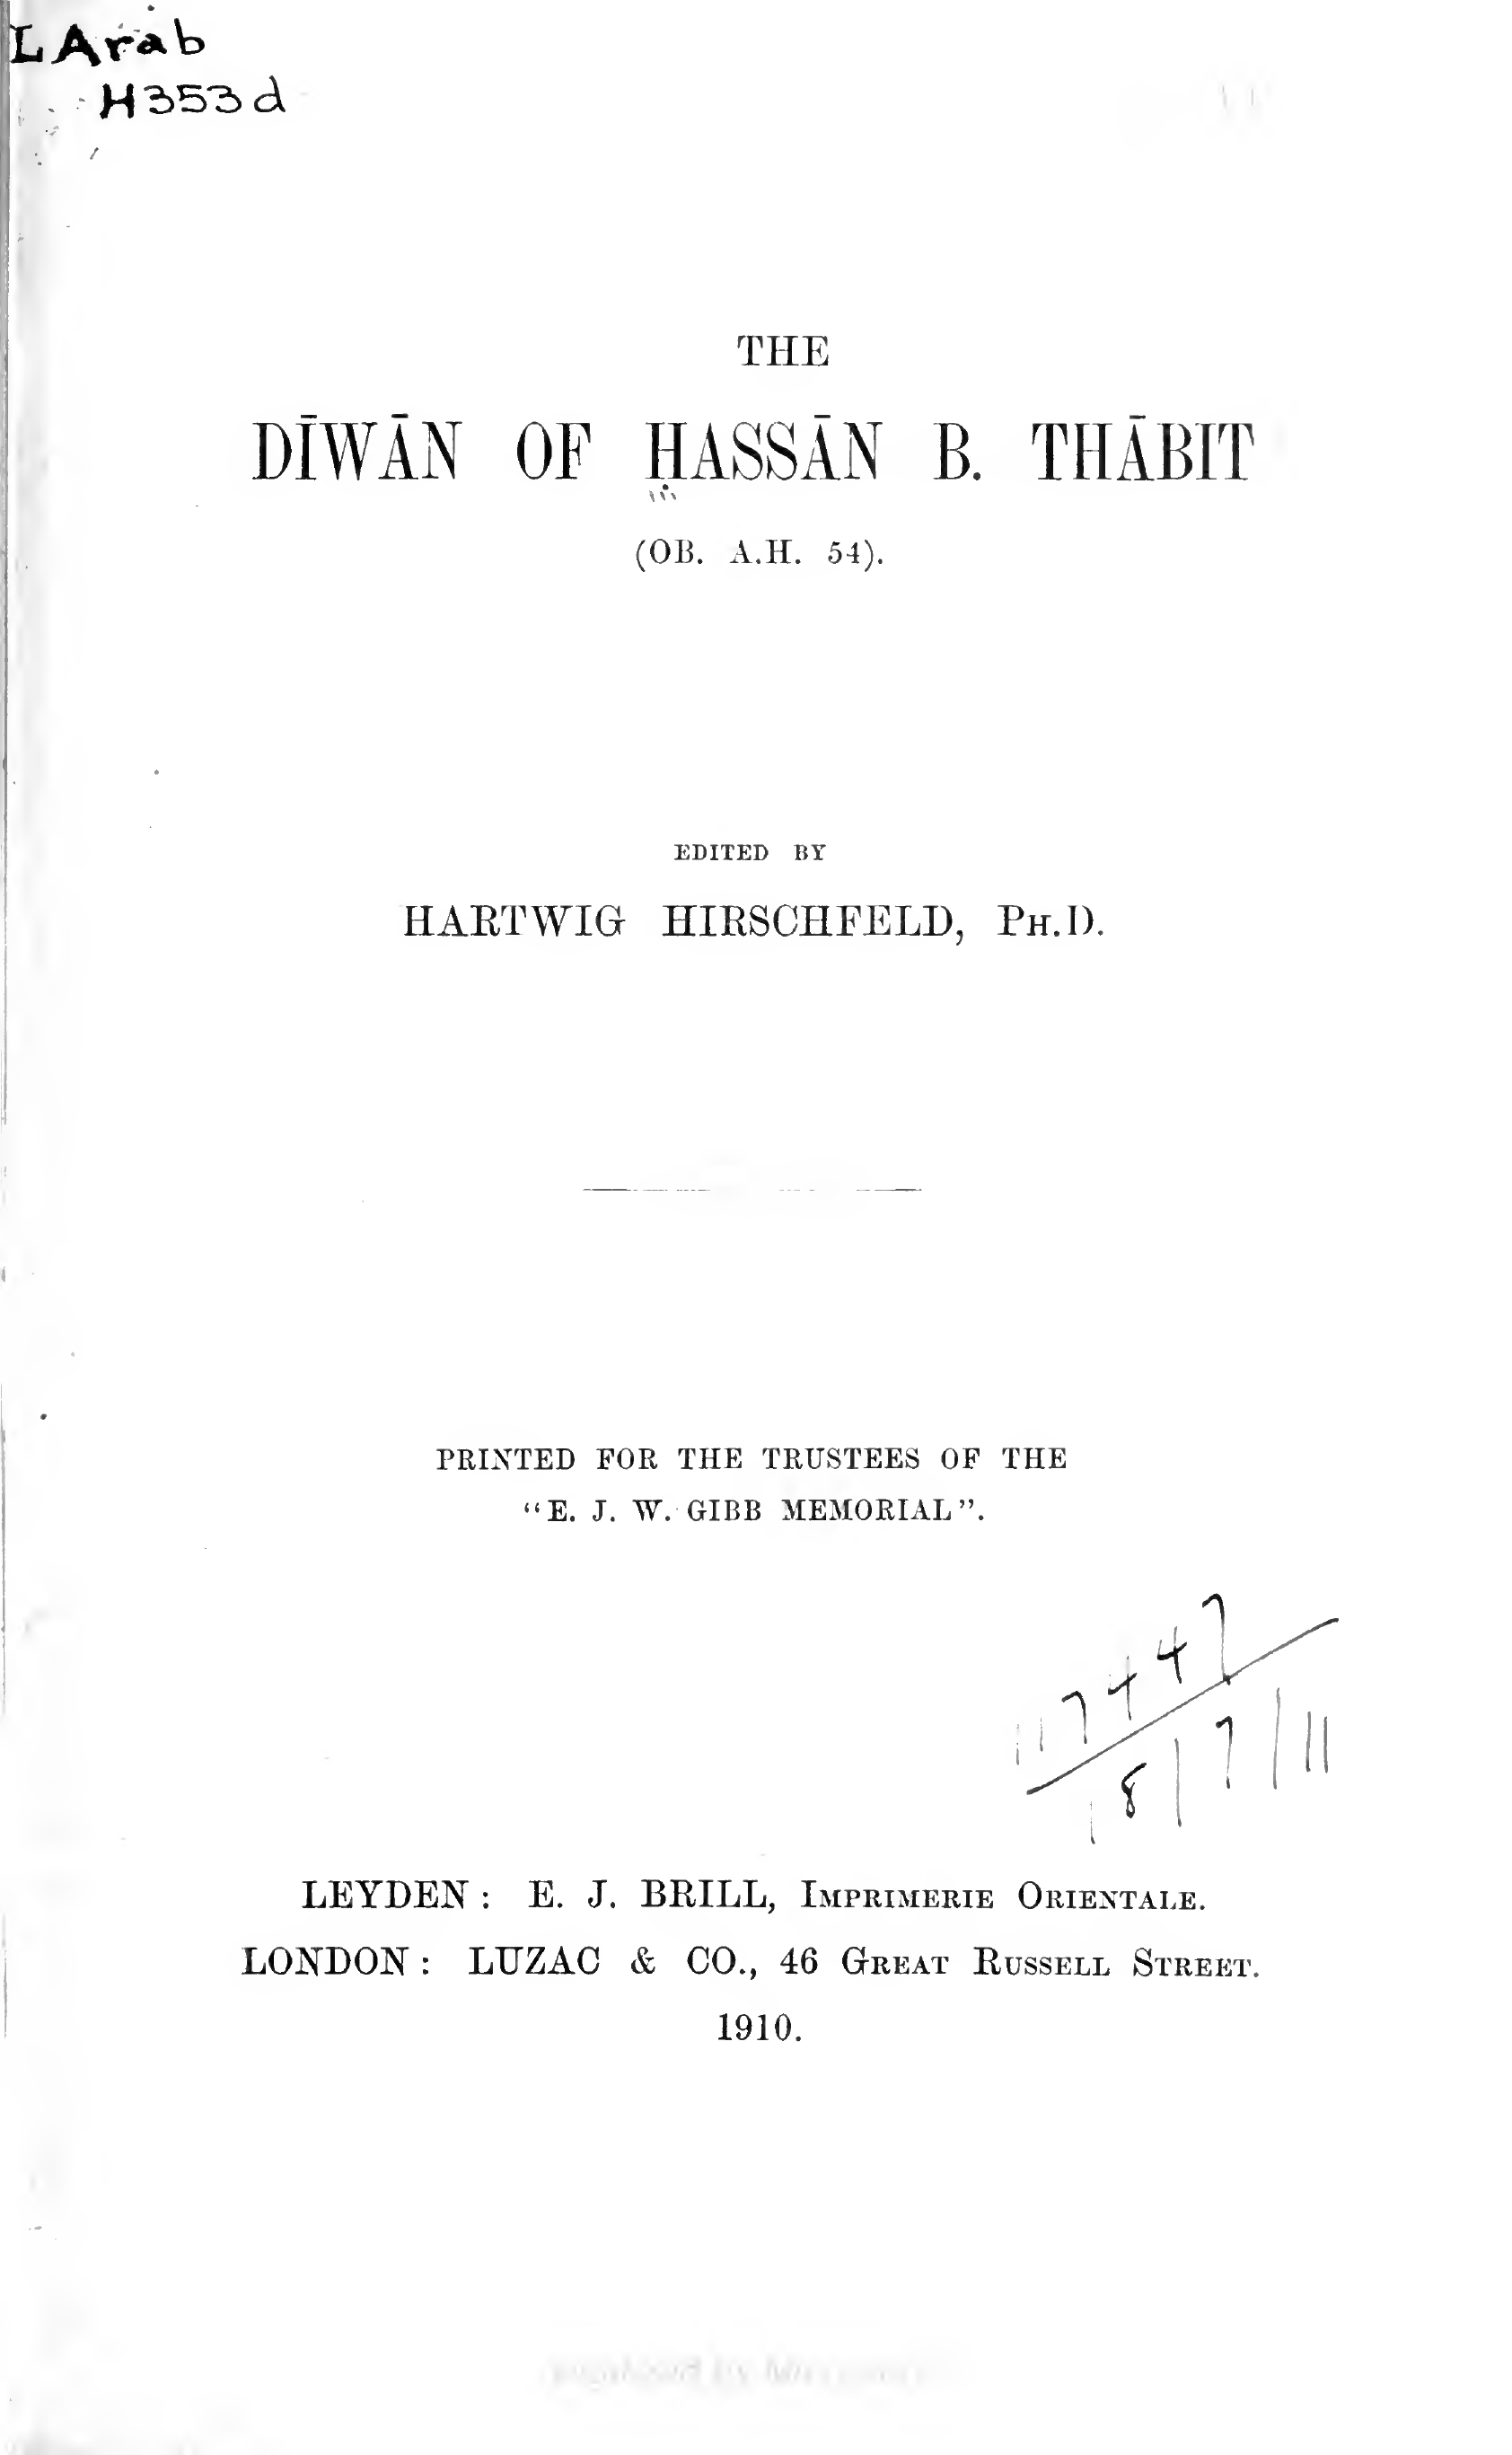 LArab
H353d
THE
DĪWĀN OF ḤASSĀN B. THĀBIT
(OB. A.H. 54).
EDITED BY
HARTWIG HIRSCHFELD, PH.D.
PRINTED FOR THE TRUSTEES OF THE
“E. J. W. GIBB MEMORIAL”.
117447
18/7/11
LEYDEN: E. J. BRILL, IMPRIMERIE ORIENTALE.
LONDON: LUZAC & CO., 46 GREAT RUSSELL STREET.
1910.